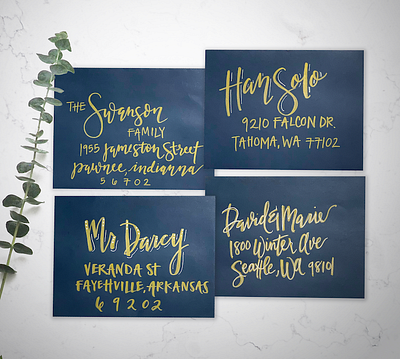 THE Swanson
FAMILY
1955 Jameston Street
pawnee, indianna
56702
Han Solo
9210 FALCON DR.
TAHOMA, WA 77102
Mr Darcy
VERANDA ST
FAYEHVILLE, ARKANSAS
69202
David & Marie
1800 Winter Ave
Seattle, WA 98101